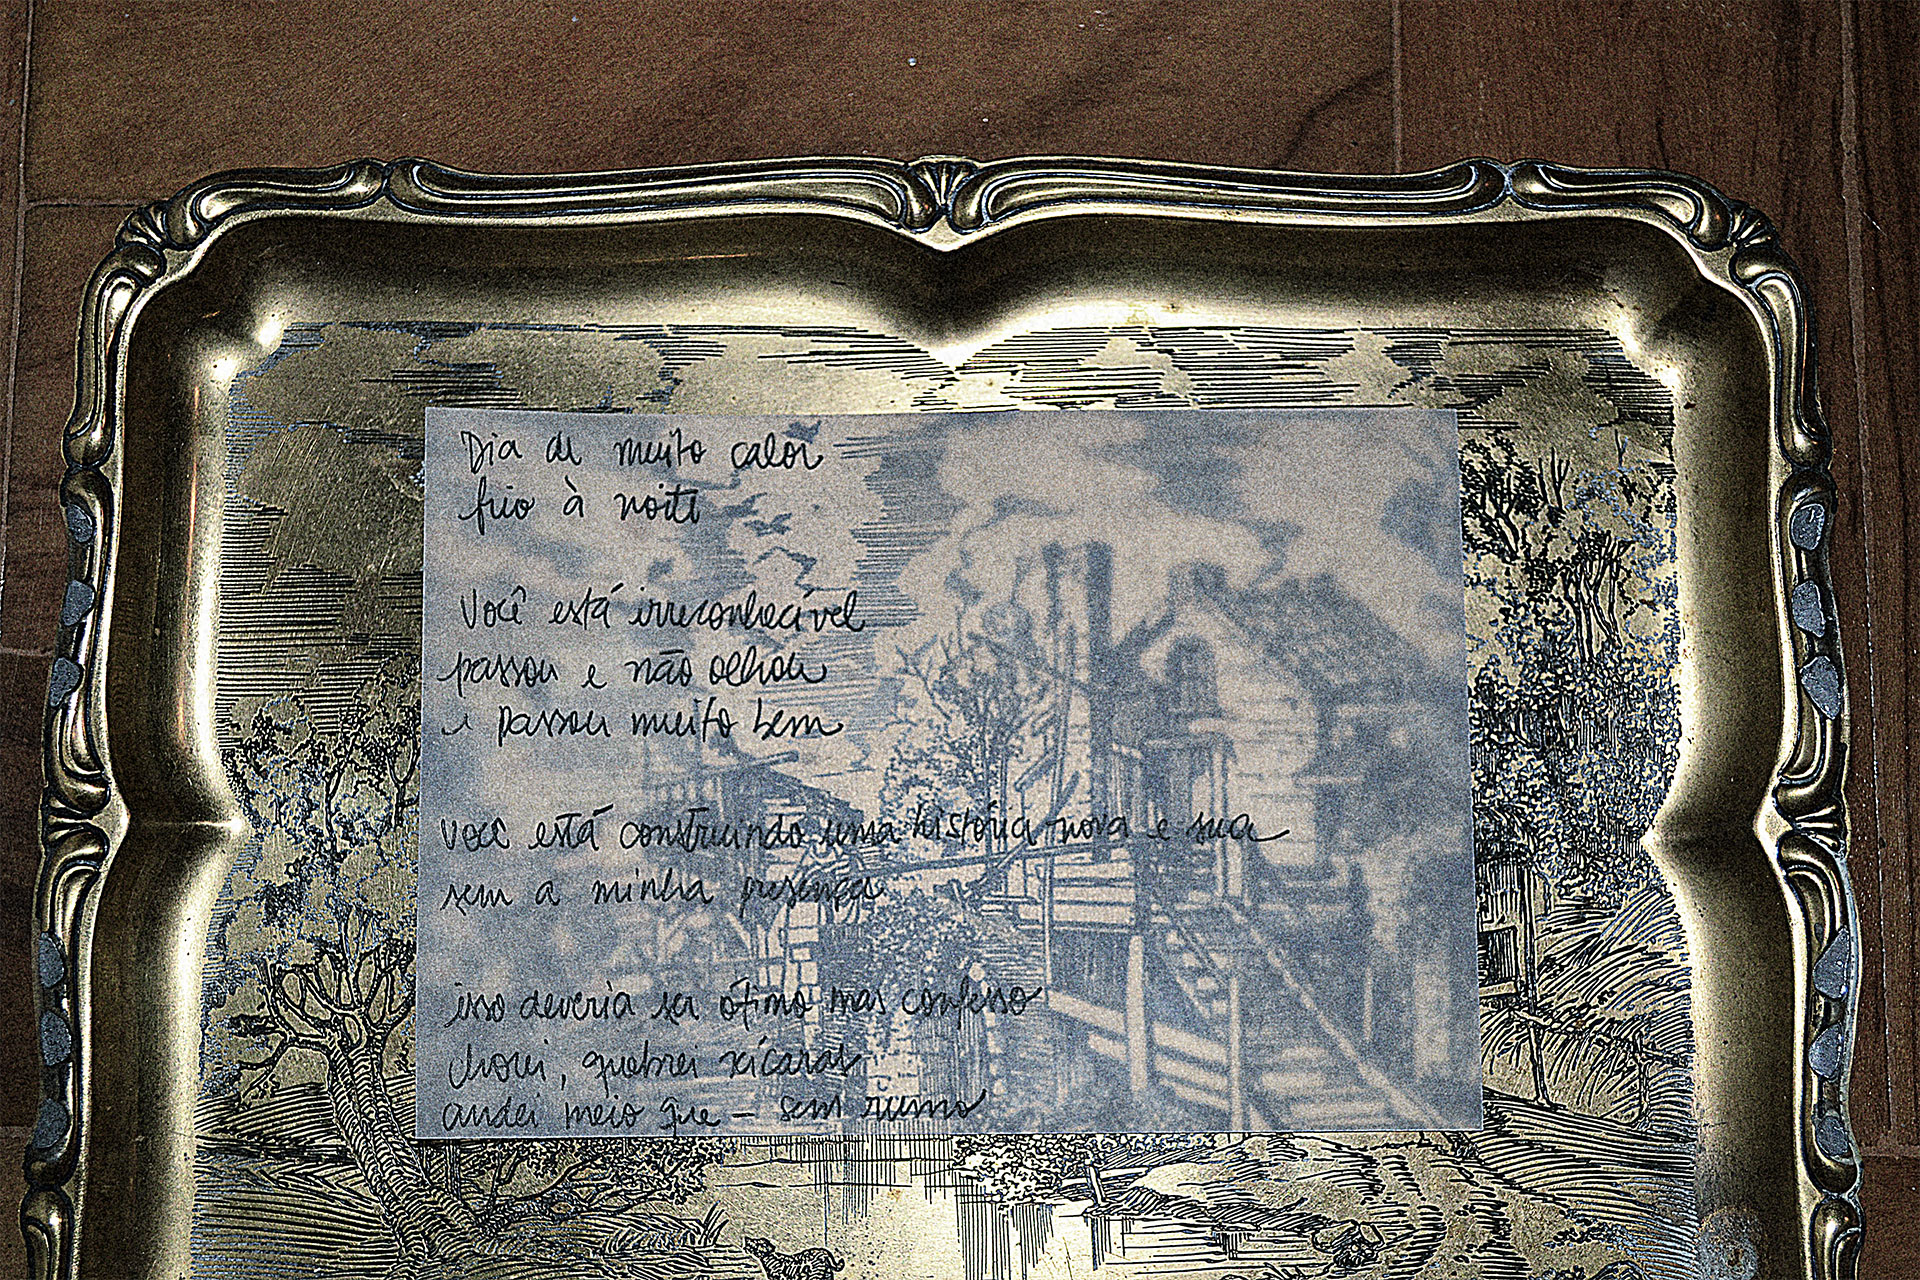 Dia de muito calor
frio à noite
Você está irreconhecível
passou e não olhou
e passou muito bem
você está construindo uma história nova e sua
sem a minha presença
isso deveria ser ótimo mas confesso
chorei, quebrei xícaras
andei meio que – sem rumo